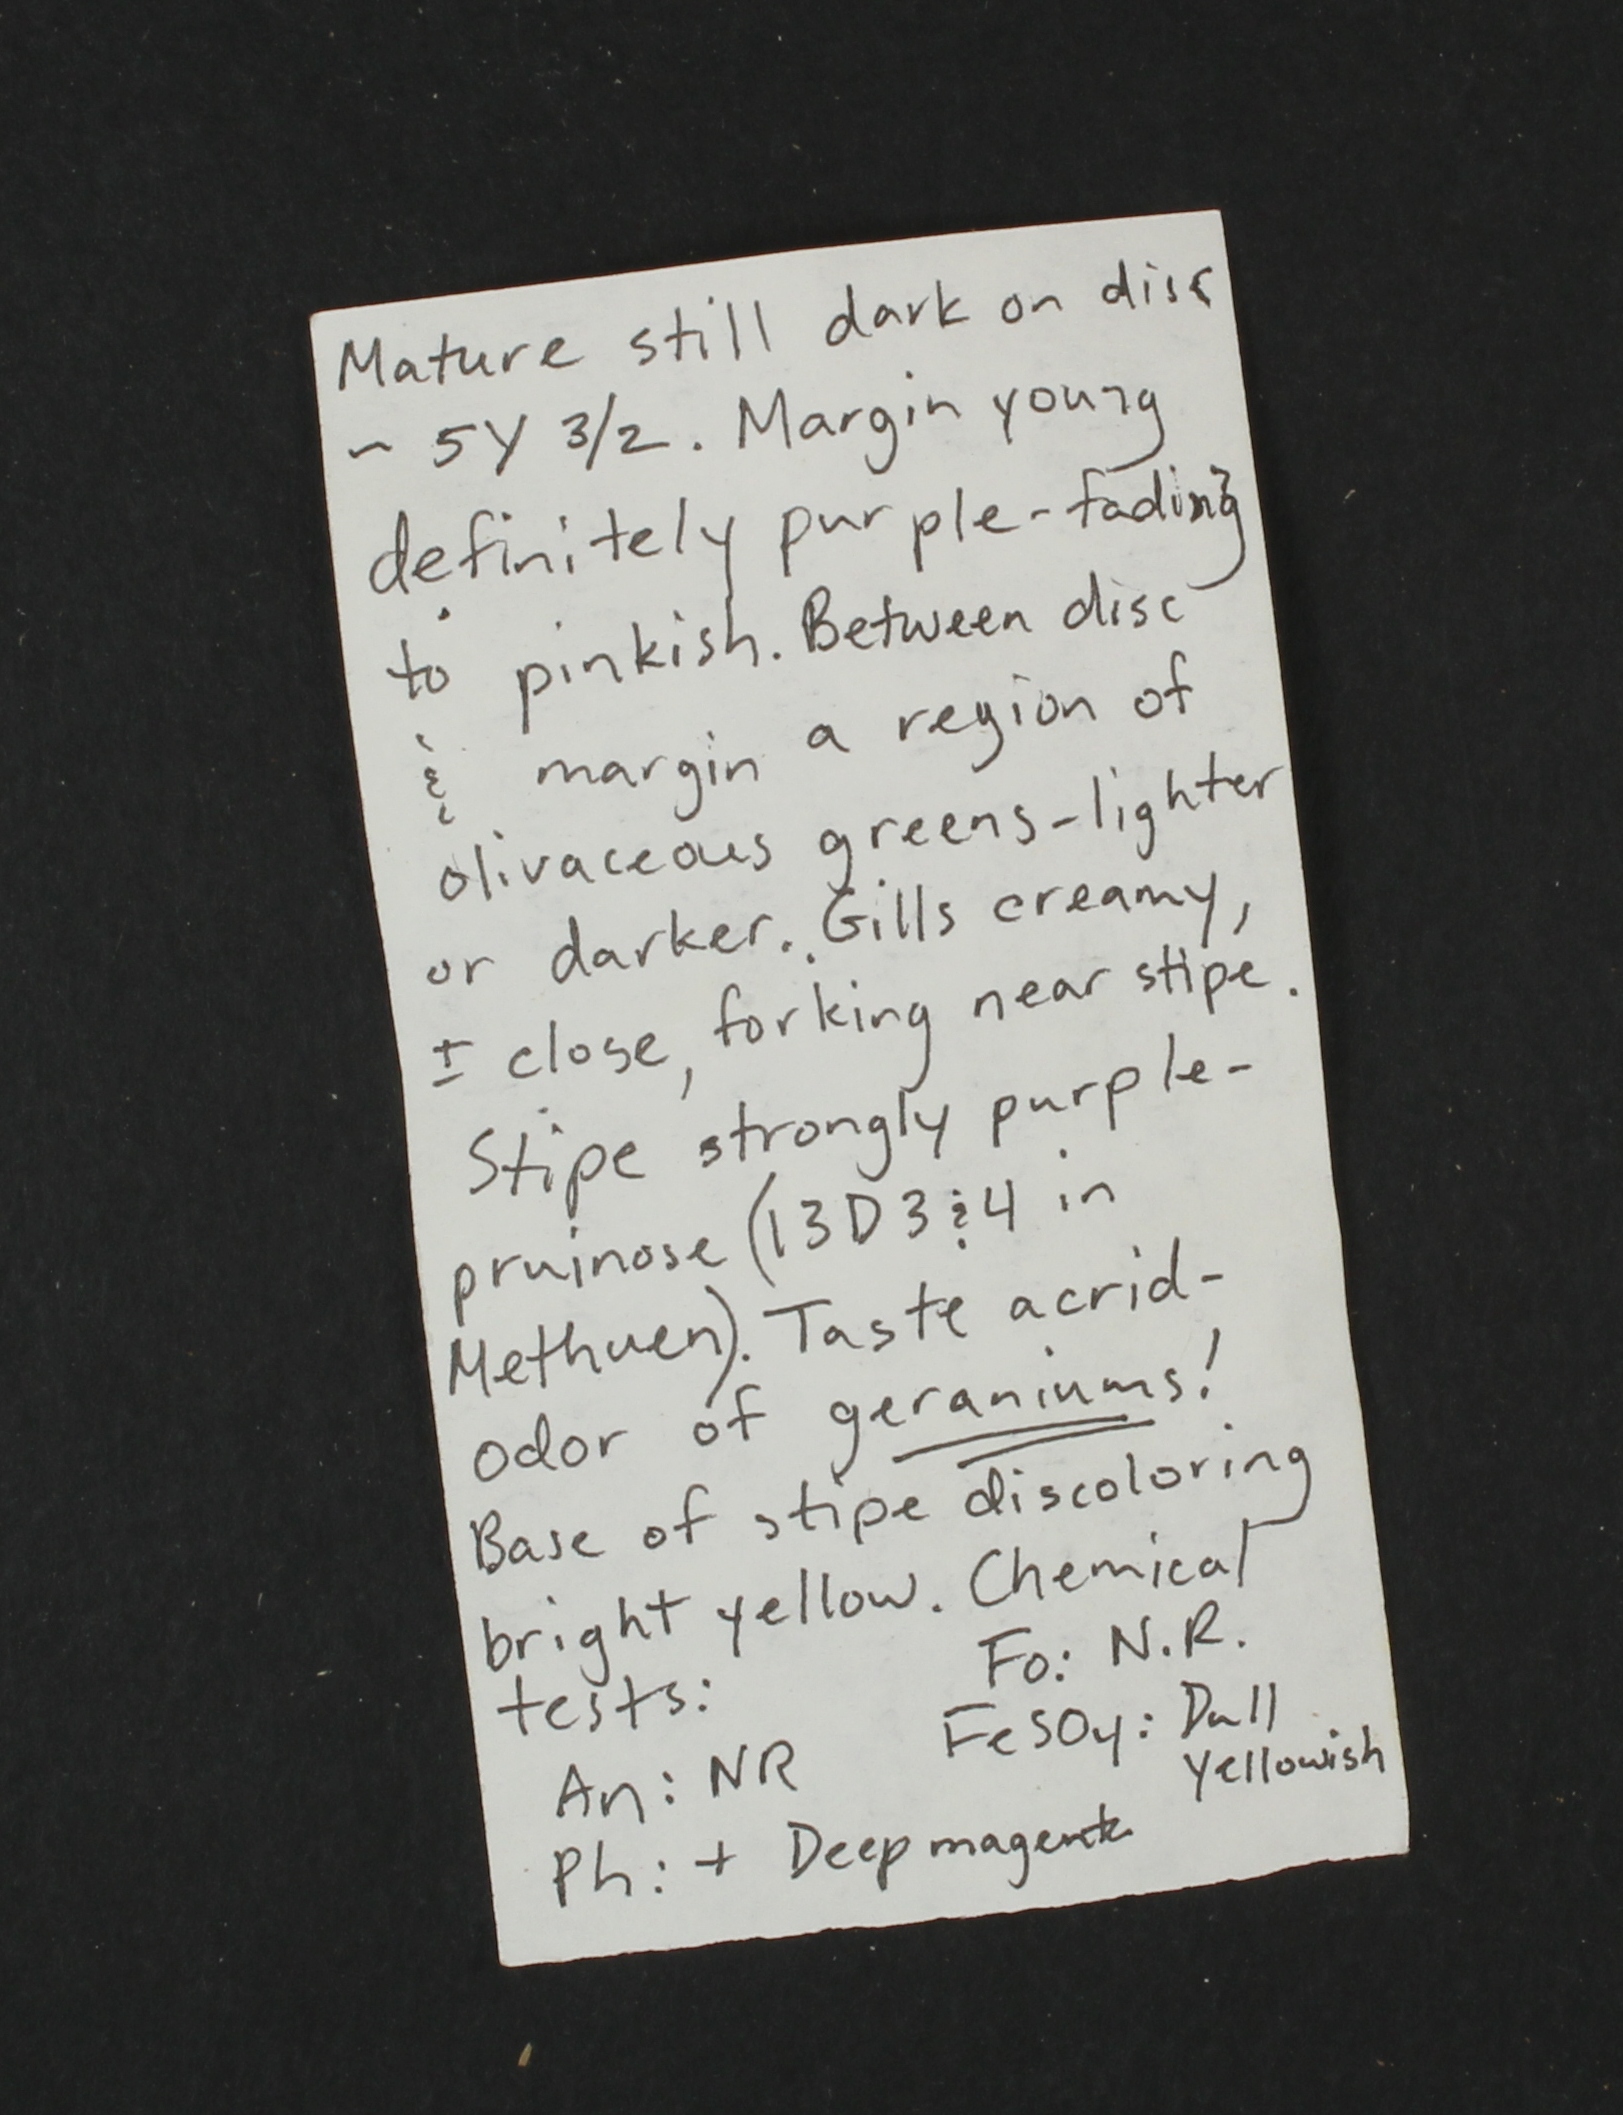 Mature still dark on disc
~ 5Y 3/2. Margin young
definitely purple-fading
to pinkish. Between disc
& margin a region of
olivaceous greens-lighter
or darker. Gills creamy,
± close, forking near stipe.
Stipe strongly purple-
pruinose (13D3&4 in
Methuen). Taste acrid-
odor of geraniums!
Base of stipe discoloring
bright yellow. Chemical
tests: Fo: N.R.
An: NR FeSO4: Dull
yellowish
Ph: + Deep magenta